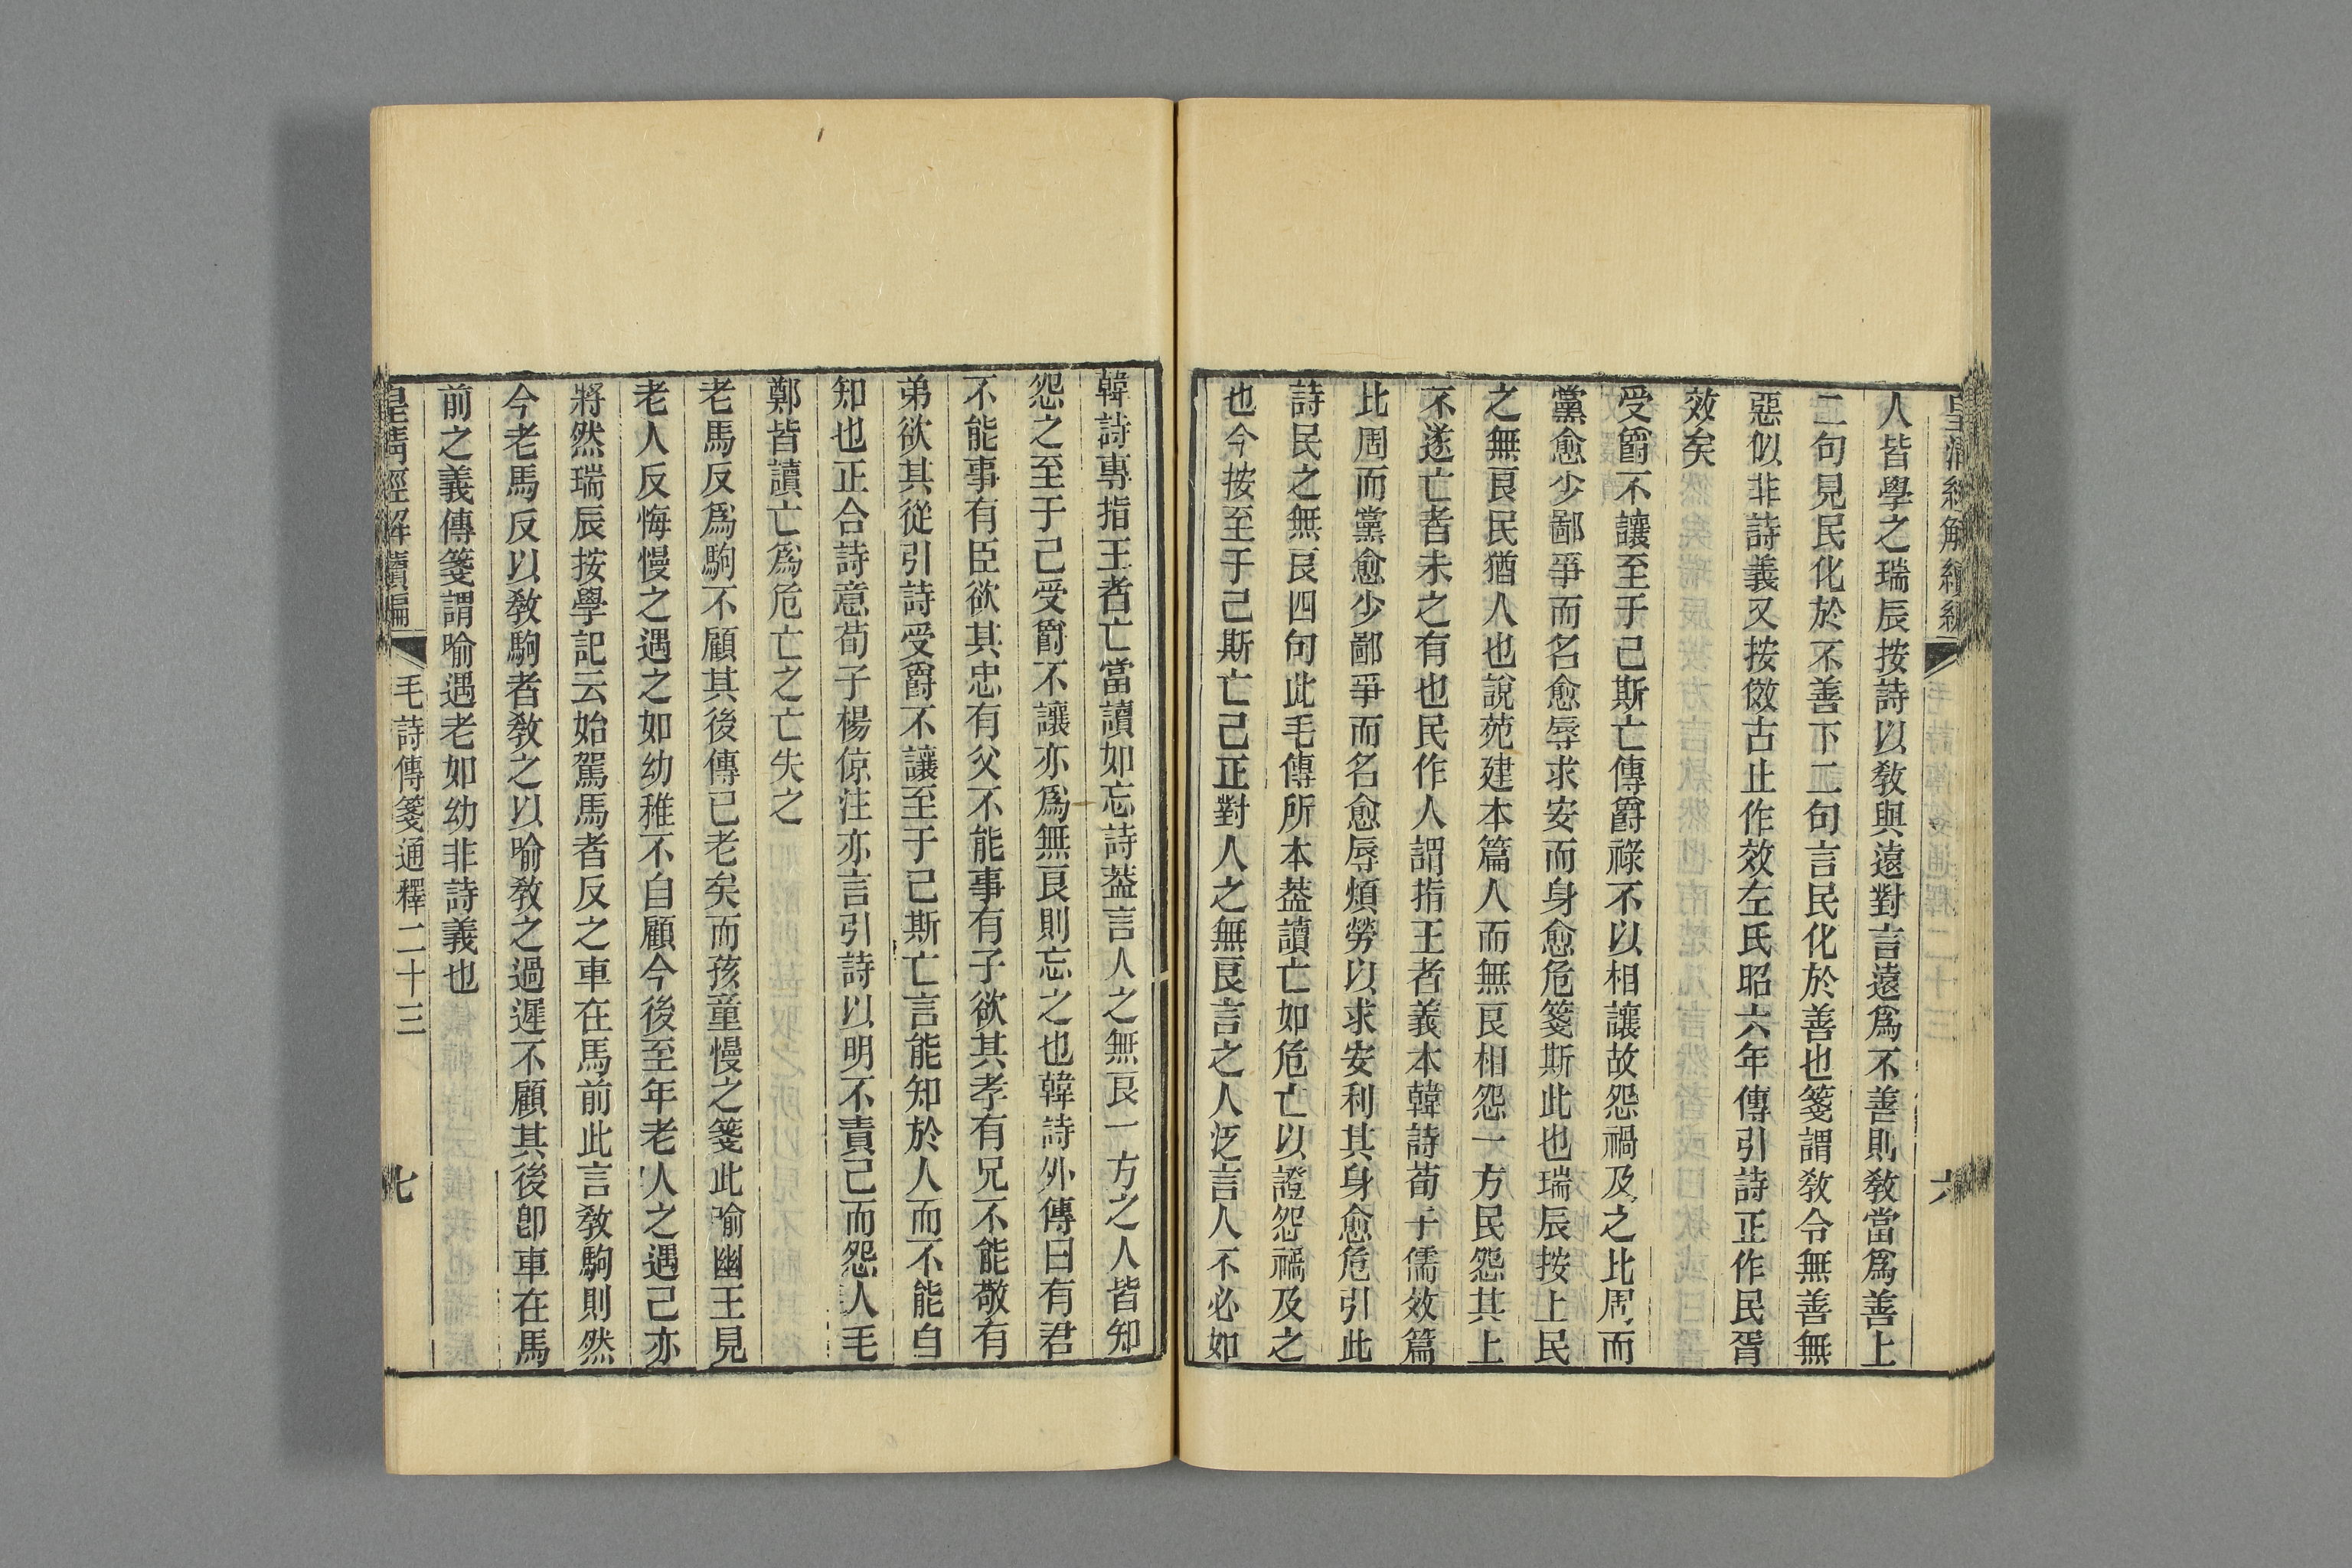 皇清經解續編 毛詩傳箋通釋二十三 六
人皆學之瑞辰按詩以敎與遠對言遠爲不善則敎當爲善上
二句見民化於不善下二句言民化於善也箋謂敎令無善無
惡似非詩義又按傚古止作效左氏昭六年傳引詩正作民胥
效矣
受爵不讓至于己斯亡傳爵祿不以相讓故怨禍及之比周而
黨愈少鄙爭而名愈辱求安而身愈危箋斯此也瑞辰按上民
之無良民猶人也說苑建本篇人而無良相怨一方民怨其上
不遂亡者未之有也民作人謂指王者義本韓詩荀子儒效篇
比周而黨愈少鄙爭而名愈辱煩勞以求安利其身愈危引此
詩民之無良四句此毛傳所本葢讀亡如危亡以證怨禍及之
也今按至于己斯亡己正對人之無良言之人泛言人不必如
韓詩專指王者亡當讀如忘詩葢言人之無良一方之人皆知
怨之至于己受爵不讓亦爲無良則忘之也韓詩外傳曰有君
不能事有臣欲其忠有父不能事有子欲其孝有兄不能敬有
弟欲其從引詩受爵不讓至于己斯亡言能知於人而不能自
知也正合詩意荀子楊倞注亦言引詩以明不責己而怨人毛
鄭皆讀亡爲危亡之亡失之
老馬反爲駒不顧其後傳已老矣而孩童慢之箋此喻幽王見
老人反侮慢之遇之如幼稚不自顧今後至年老人之遇己亦
將然瑞辰按學記云始駕馬者反之車在馬前此言敎駒則然
今老馬反以敎駒者敎之以喻敎之過遲不顧其後卽車在馬
前之義傳箋謂喻遇老如幼非詩義也
皇淸經解續編 毛詩傳箋通釋二十三 七